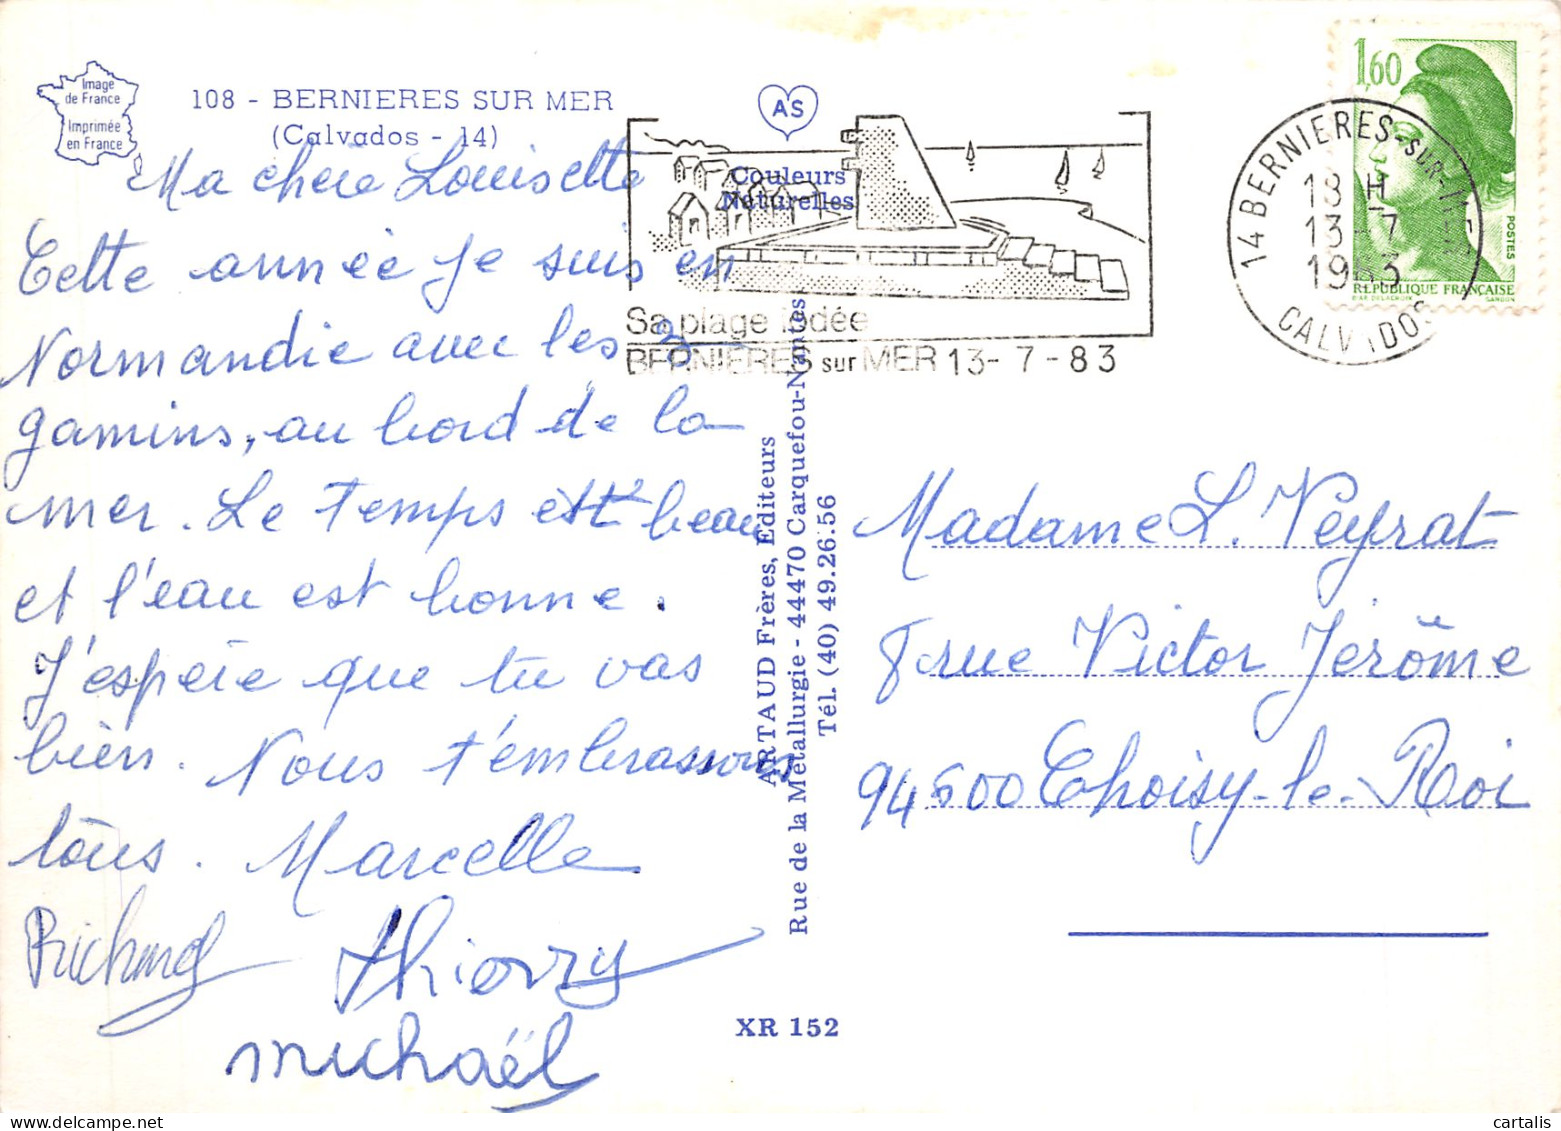 Image
de France
Imprimée
en France
108 - BERNIERES SUR MER
(Calvados - 14)
AS
Couleurs
Naturelles
Ma chère Louisette
Cette année je suis en
Normandie avec les 3
gamins, au bord de la
mer. Le temps est beau
et l'eau est bonne.
J'espère que tu vas
bien. Nous t'embrassons
tous. Marcelle
Richard
Thierry
michaël
Sa plage iodée
BERNIERES sur MER 13-7-83
14 BERNIERES-SUR-MER
18 H
13-7
1983
CALVADOS
1,60
POSTES
REPUBLIQUE FRANÇAISE
D'AP. DELACROIX GANDON
ARTAUD Frères, Editeurs
Rue de la Métallurgie - 44470 Carquefou-Nantes
Tél. (40) 49.26.56
Madame L. Veyrat
8 rue Victor Jérôme
94600 Choisy-le-Roi
XR 152
cartalis